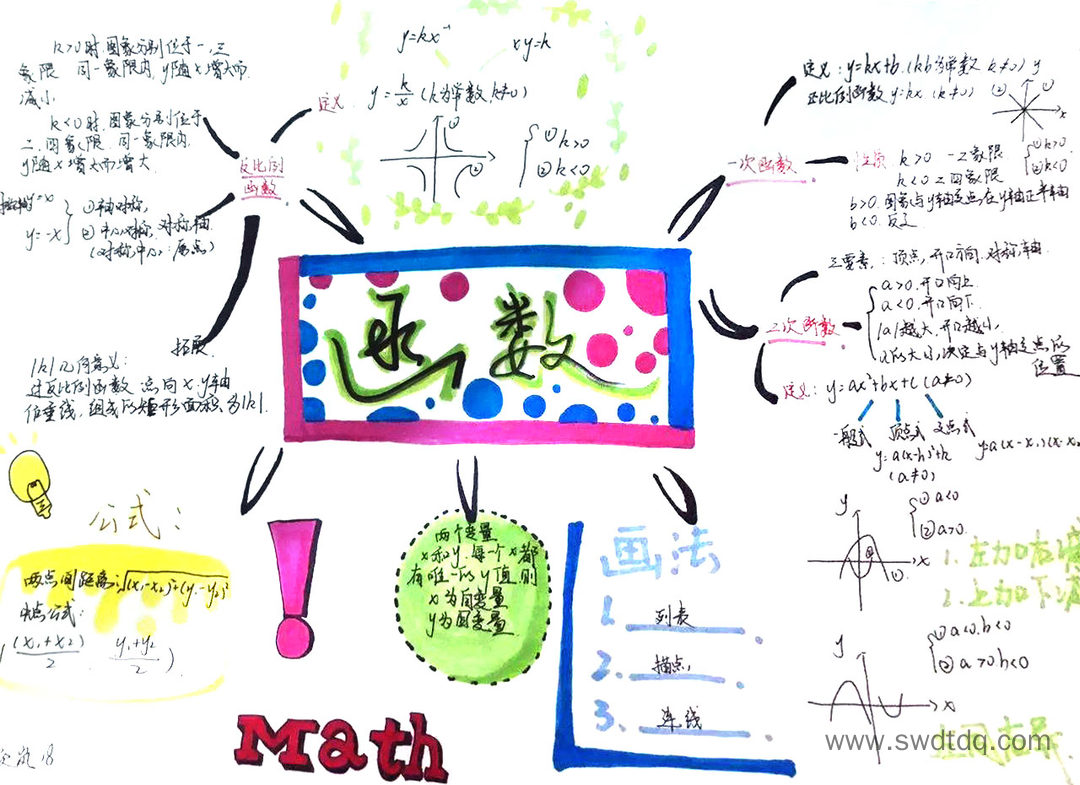 k>0时.图象分别位于一.三
象限 同一象限内.y随x增大而
减小
k<0时.图象分别位于
二.四象限.同一象限内.
y随x增大而增大
反比例
函数
y=x
y=-x
①轴对称,
②中心对称.对称轴
(对称中心:原点)
拓展
|k|几何意义:
过反比例函数 点向x.y轴
作垂线,组成的矩形面积为|k|.
y=kx⁻¹
xy=k
定义:
y=k/x (k为常数,k≠0)
①
②
①k>0
②k<0
函数
一次函数
定义:y=kx+b.(kb为常数 k≠0)
正比例函数y=kx (k≠0)
y
x
②
①
①k>0
②k<0
性质.k>0 一三象限
k<0 二四象限
b>0.图象与y轴交点在y轴正半轴
b<0.反之
二次函数
三要素:顶点,开口方向.对称轴.
a>0.开口向上
a<0.开口向下.
|a|越大.开口越小,
位置
定义:y=ax²+bx+c(a≠0)
一般式 顶点式 交点式
y=a(x-h)²+k
(a≠0)
y=a(x-x₁)(x-x₂
y
x
①a<0
②a>0.
1.左加右减
2.上加下减
y
x
①a<0.b<0
②a>0b<0
公式:
两点间距离:√(x₁-x₂)²+(y₁-y₂)²
中点公式:
((x₁+x₂)/2 . (y₁+y₂)/2)
两个变量
x和y,每一个x都
有唯一的y值.则
x为自变量
y为因变量
画法
1. 列表
2. 描点,
3. 连线
Math
左同右异
www.swdtdq.com
18